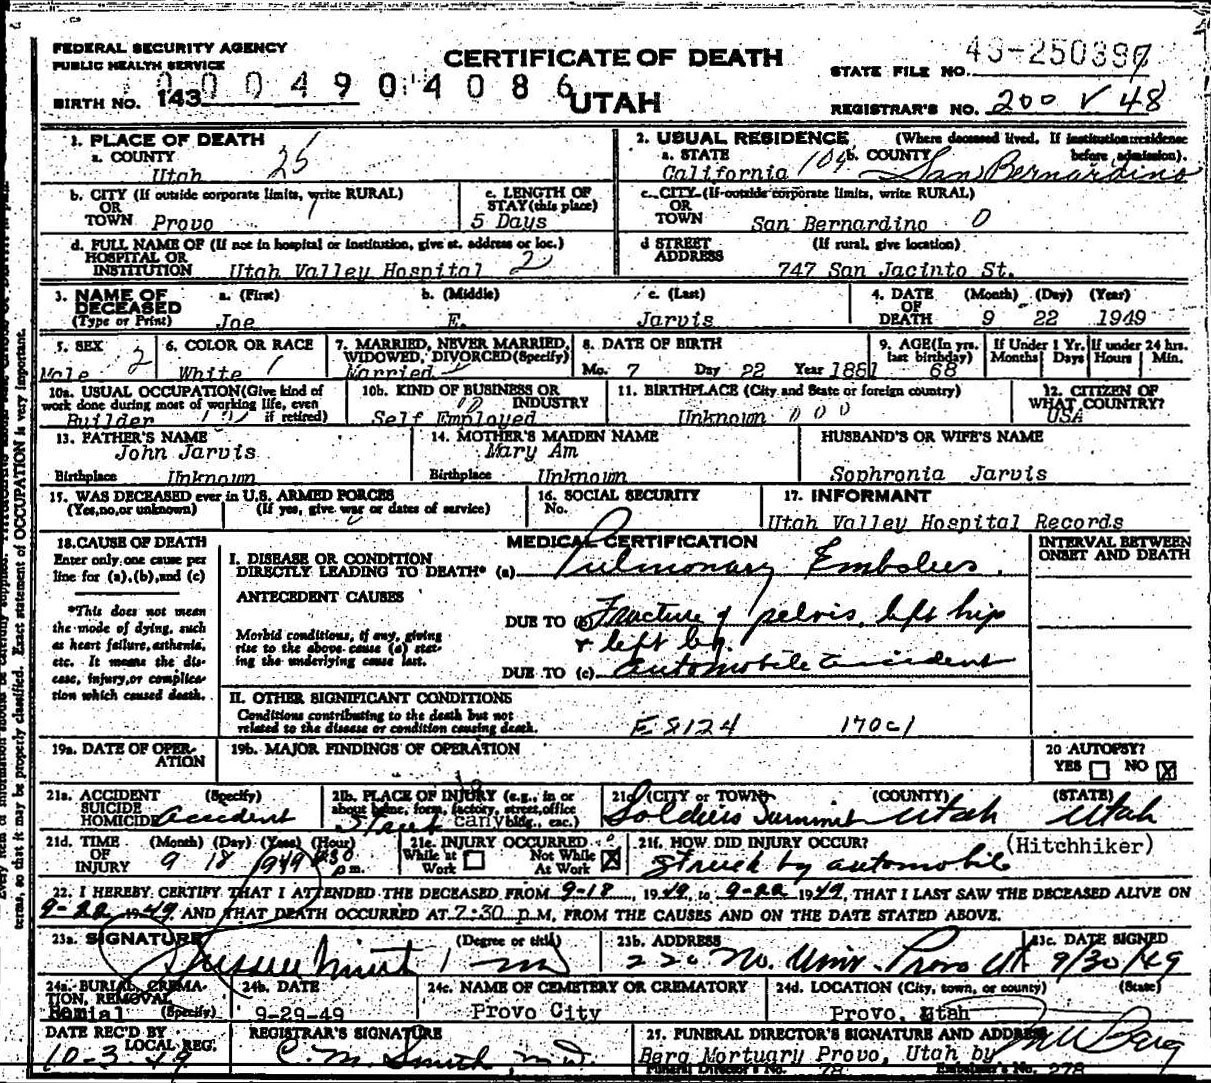 FEDERAL SECURITY AGENCY
PUBLIC HEALTH SERVICE
CERTIFICATE OF DEATH
UTAH
STATE FILE NO.
BIRTH NO. 143
0004904086
REGISTRAR'S NO. 200 V 48
1. PLACE OF DEATH
a. COUNTY
Utah 25
2. USUAL RESIDENCE (Where deceased lived. If institution: residence before admission).
a. STATE California 104 b. COUNTY San Bernardino
b. CITY (If outside corporate limits, write RURAL)
OR
TOWN Provo 1
c. LENGTH OF STAY (this place)
5 Days
c. CITY (If outside corporate limits, write RURAL)
OR
TOWN San Bernardino 0
d. FULL NAME OF (If not in hospital or institution, give st. address or loc.)
HOSPITAL OR
INSTITUTION Utah Valley Hospital 2
d STREET ADDRESS (If rural, give location)
747 San Jacinto St.
3. NAME OF DECEASED
(Type or Print)
a. (First) b. (Middle) c. (Last)
Joe E. Jarvis
4. DATE OF DEATH (Month) (Day) (Year)
9 22 1949
5. SEX 2
Male
6. COLOR OR RACE
White 1
7. MARRIED, NEVER MARRIED, WIDOWED, DIVORCED (Specify)
Married
8. DATE OF BIRTH
Mo. 7 Day 22 Year 1881
9. AGE (In yrs. last birthday)
68
If Under 1 Yr. Months Days
If under 24 hrs. Hours Min.
10a. USUAL OCCUPATION (Give kind of work done during most of working life, even if retired)
Builder
10b. KIND OF BUSINESS OR INDUSTRY
Self Employed
11. BIRTHPLACE (City and State or foreign country)
Unknown 000
12. CITIZEN OF WHAT COUNTRY?
USA
13. FATHER'S NAME
John Jarvis
Birthplace Unknown
14. MOTHER'S MAIDEN NAME
Mary Am
Birthplace Unknown
HUSBAND'S OR WIFE'S NAME
Sophronia Jarvis
15. WAS DECEASED ever in U.S. ARMED FORCES
(Yes, no, or unknown) (If yes, give war or dates of service)
16. SOCIAL SECURITY
No.
17. INFORMANT
Utah Valley Hospital Records
18. CAUSE OF DEATH
Enter only one cause per line for (a), (b), and (c)
*This does not mean the mode of dying, such as heart failure, asthenia, etc. It means the disease, injury, or complication which caused death.
MEDICAL CERTIFICATION
INTERVAL BETWEEN ONSET AND DEATH
I. DISEASE OR CONDITION DIRECTLY LEADING TO DEATH* (a) Pulmonary Embolus.
ANTECEDENT CAUSES
Morbid conditions, if any, giving rise to the above cause (a) stating the underlying cause last.
DUE TO (b) Fracture of pelvis, left hip
& left leg.
DUE TO (c) automobile accident
II. OTHER SIGNIFICANT CONDITIONS
Conditions contributing to the death but not related to the disease or condition causing death.
E8124 170c1
19a. DATE OF OPERATION
19b. MAJOR FINDINGS OF OPERATION
20 AUTOPSY?
YES NO X
21a. ACCIDENT SUICIDE HOMICIDE (Specify)
accident
21b. PLACE OF INJURY (e.g., in or about home, farm, factory, street, office bldg., etc.)
Street cany
21c. (CITY or TOWN) (COUNTY) (STATE)
Soldiers Summit Utah Utah
21d. TIME OF INJURY (Month) (Day) (Year) (Hour)
9 18 1949 8:30 pm.
21e. INJURY OCCURRED
While at Work Not While At Work X
21f. HOW DID INJURY OCCUR? (Hitchhiker)
struck by automobile
22. I HEREBY CERTIFY THAT I ATTENDED THE DECEASED FROM 9-18, 1949, to 9-22 1949, THAT I LAST SAW THE DECEASED ALIVE ON
9-22 1949 AND THAT DEATH OCCURRED AT 7:30 p.M, FROM THE CAUSES AND ON THE DATE STATED ABOVE.
23a. SIGNATURE (Degree or title)
MD
23b. ADDRESS
220 No. Univ. Provo Ut
23c. DATE SIGNED
9/30/49
24a. BURIAL, CREMATION, REMOVAL (Specify)
24b. DATE
9-29-49
24c. NAME OF CEMETERY OR CREMATORY
Provo City
24d. LOCATION (City, town, or county) (State)
Provo, Utah
DATE REC'D BY LOCAL REG.
10-3-49
REGISTRAR'S SIGNATURE
C. M. Smith, M.D.
25. FUNERAL DIRECTOR'S SIGNATURE AND ADDRESS
Berg Mortuary Provo, Utah by
Funeral Director's No. 78 Embalmer's No. 278
terms, so that it may be properly classified. Exact statement of OCCUPATION is very important.